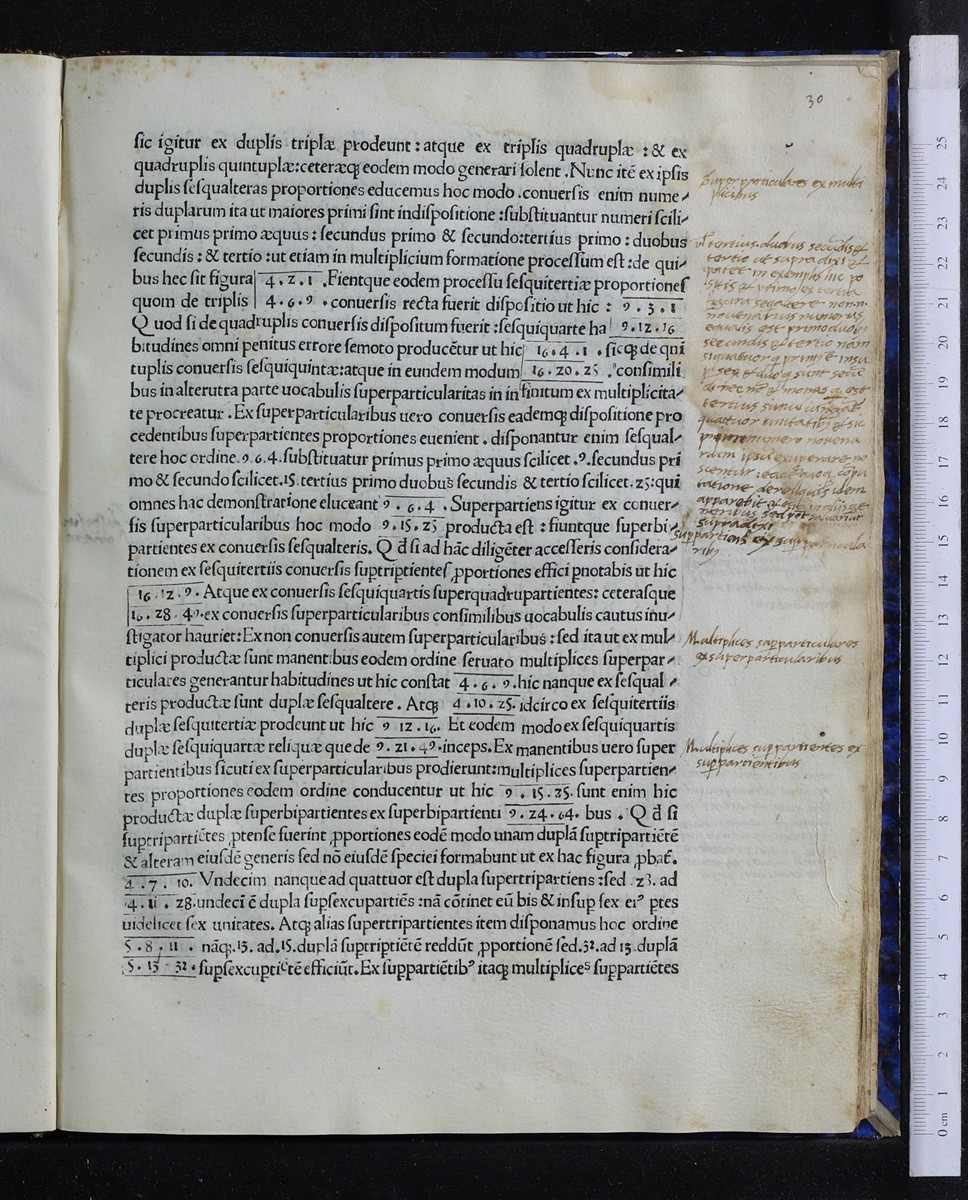 30
sic igitur ex duplis triplæ prodeunt : atque ex triplis quadruplæ : & ex
quadruplis quintuplæ:ceteræq; eodem modo generari solent . Nunc itē ex ipsis
duplis sesqualteras proportiones educemus hoc modo .conuersis enim nume⸗
ris duplarum ita ut maiores primi sint indispositione :substituantur numeri scili⸗
cet primus primo æquus : secundus primo & secundo:tertius primo : duobus
secundis : & tertio :ut etiam in multiplicium formatione processum est :de qui⸗
bus hec sit figura 4 . 2 . 1 .Fientque eodem processu sesquitertiæ proportiones
quom de triplis 4 . 6 . 9 . conuersis recta fuerit dispositio ut hic : 9 . 3 . 1
Quod si de quadruplis conuersis dispositum fuerit :sesquiquarte ha 9 . 12 . 16
bitudines omni penitus errore semoto producētur ut hic 16 . 4 . 1 . sicq; de qni
tuplis conuersis sesquiquintæ:atque in eundem modum 16 . 20 . 25 . consimili
bus in alterutra parte uocabulis superparticularitas in in finitum ex multiplicita⸗
te procreatur . Ex superparticularibus uero conuersis eademq; dispositione pro
cedentibus superpartientes proportiones euenient . disponantur enim sesqual⸗
tere hoc ordine .9.6.4.substituatur primus primo æquus scilicet .9.secundus pri
mo & secundo scilicet.15.tertius primo duobus secundis & tertio scilicet.25:qui
omnes hac demonstratione eluceant 9 . 6 . 4 . Superpartiens igitur ex conuer⸗
sis superparticularibus hoc modo 9 . 15 . 25 producta est : fiuntque superbi⸗
partientes ex conuersis sesqualteris. Q d̄ si ad hāc diligēter accesseris considera⸗
tionem ex sesquitertiis conuersis suptriptientes ꝓportiones effici pnotabis ut hic
16 . 12 . 9 . Atque ex conuersis sesquiquartis superquadrupartientes: ceterasque
16 . 28 . 49.ex conuersis superparticularibus consimilibus uocabulis cautus inu⸗
stigator hauriet:Ex non conuersis autem superparticularibus : sed ita ut ex mul⸗
tiplici productæ sunt manentibus eodem ordine seruato multiplices superpar⸗
ticulares generantur habitudines ut hic constat 4 . 6 . 9 .hic nanque ex sesqual⸗
teris productæ sunt duplæ sesqualtere . Atq; 4 . 10 . 25. idcirco ex sesquitertiis
duplæ sesquitertiæ prodeunt ut hic 9 12 . 16. Et eodem modo ex sesquiquartis
duplæ sesquiquartæ reliquæ que de 9 . 21 . 49 .inceps. Ex manentibus uero super
partientibus sicuti ex superparticularibus prodierunt:multiplices superpartien⸗
tes proportiones eodem ordine conducentur ut hic 9 . 15 . 25. sunt enim hic
productæ duplæ superbipartientes ex superbipartienti 9 . 24 . 64. bus . Q d̄ si
suptripartiētes ꝓtense fuerint ꝓportiones eodē modo unam duplā suptripartiētē
& alteram eiusdē generis sed nō eiusdē speciei formabunt ut ex hac figura ꝓbat̄.
4 . 7 . 10. Vndecim nanque ad quattuor est dupla supertripartiens :sed .23. ad
4 . 11 . 28.undecī ē dupla supsexcupartiēs :nā cōtinet eū bis & insup sex eiꝰ ptes
uidelicet sex unitates. Atq; alias supertripartientes item disponamus hoc ordine
5 . 8 . 11 . nāq;.13. ad.15.duplā suptriptiētē reddūt ꝓportionē sed.32.ad 13.duplā
5 . 13 . 32 . supsexcuptiētē efficiūt. Ex suppartiētibꝰ itaq; multiplices suppartiētes
Superparticulares ex multi
plicibus
Multiplices supparticulares
ex superparticularibus
Multiplices suppartientes ex
suppartientibus